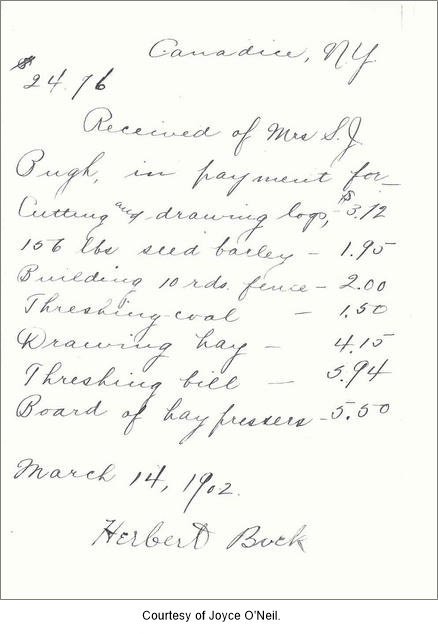 Canadice, N.Y.
$24.76
Received of Mrs S.J.
Pugh, in payment for
Cutting and drawing logs, - $3.72
156 lbs seed barley - 1.95
Building 10 rds. fence - 2.00
Threshing coal - 1.50
Drawing hay - 4.15
Threshing bill - 5.94
Board of hay pressers - 5.50
March 14, 1902.
Herbert Buck
Courtesy of Joyce O'Neil.